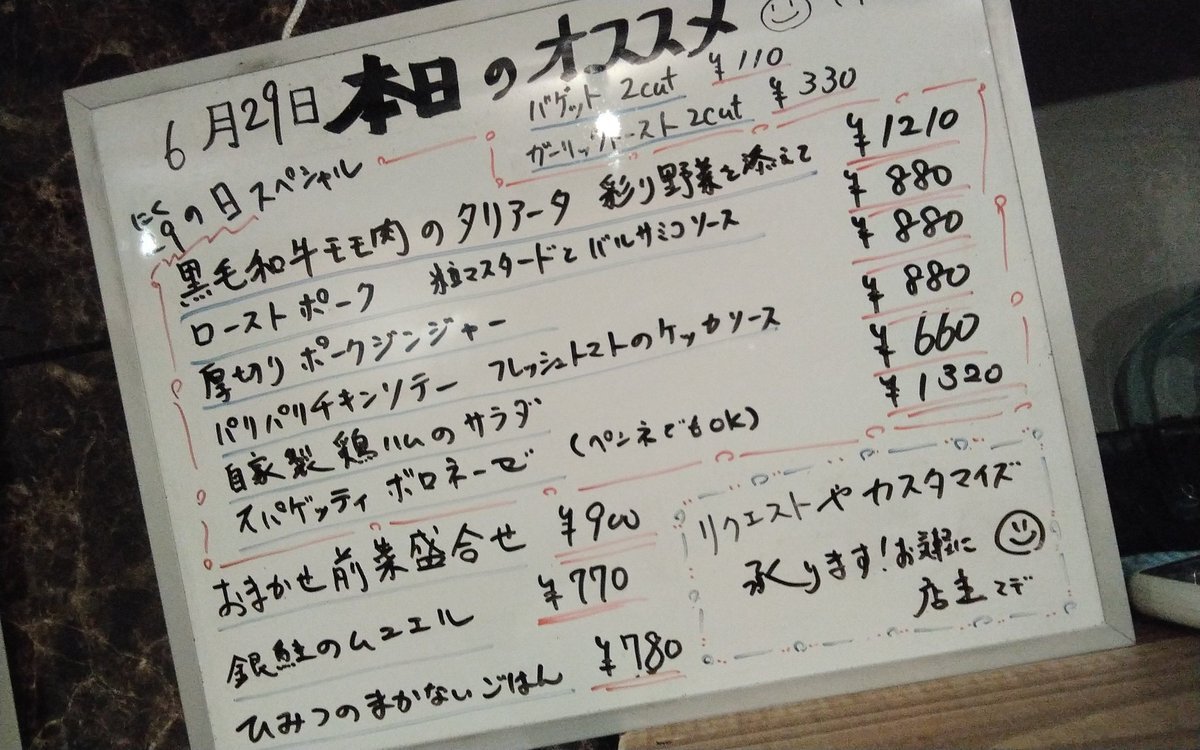 6月29日 本日のオススメ
バゲット 2cut ¥110
ガーリックトースト 2cut ¥330
にく
29の日スペシャル
黒毛和牛モモ肉のタリアータ 彩り野菜を添えて ¥1210
ローストポーク 粒マスタードとバルサミコソース ¥880
厚切りポークジンジャー ¥880
パリパリチキンソテー フレッシュトマトのケッカソース ¥880
自家製鶏ハムのサラダ ¥660
スパゲッティ ボロネーゼ (ペンネでもOK) ¥1320
おまかせ前菜盛合せ ¥900
銀鮭のムニエル ¥770
ひみつのまかないごはん ¥780
リクエストやカスタマイズ
承ります!お気軽に
店主マデ